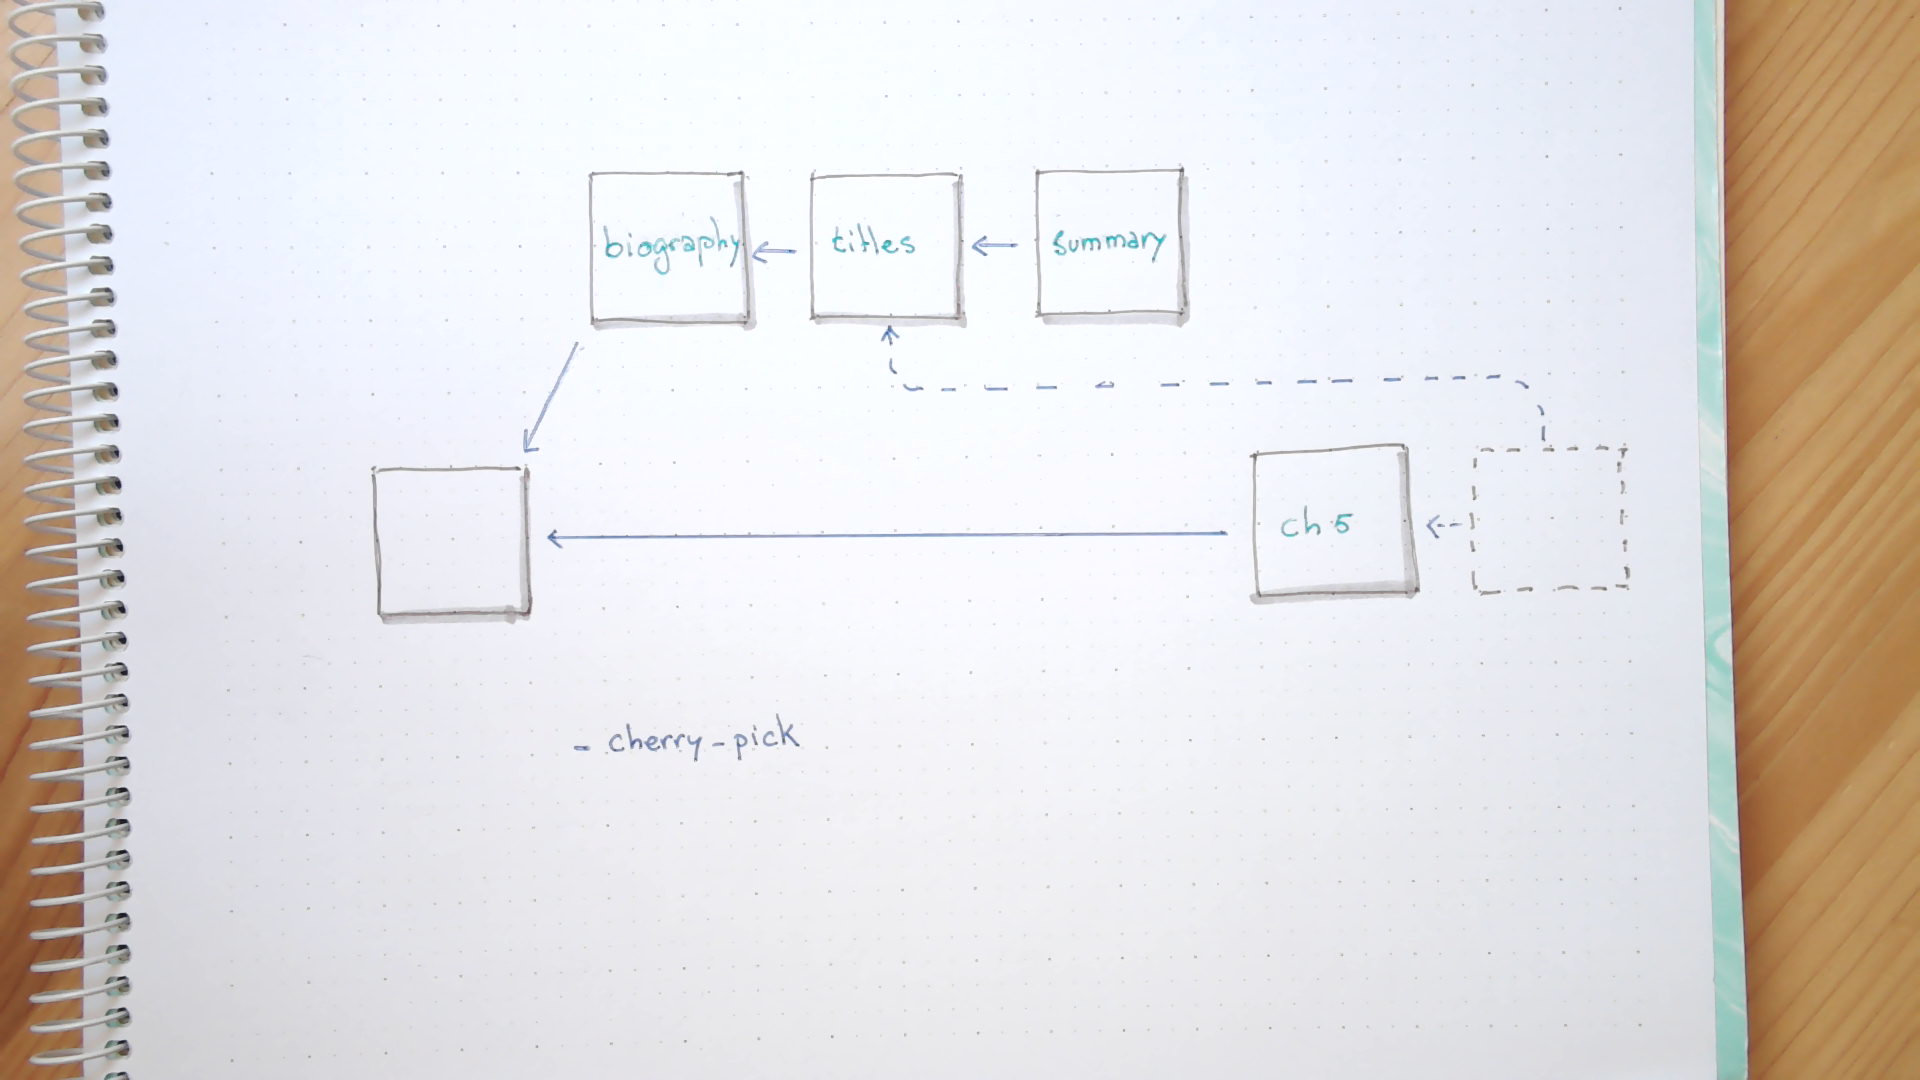 biography
titles
summary
ch 5
- cherry-pick